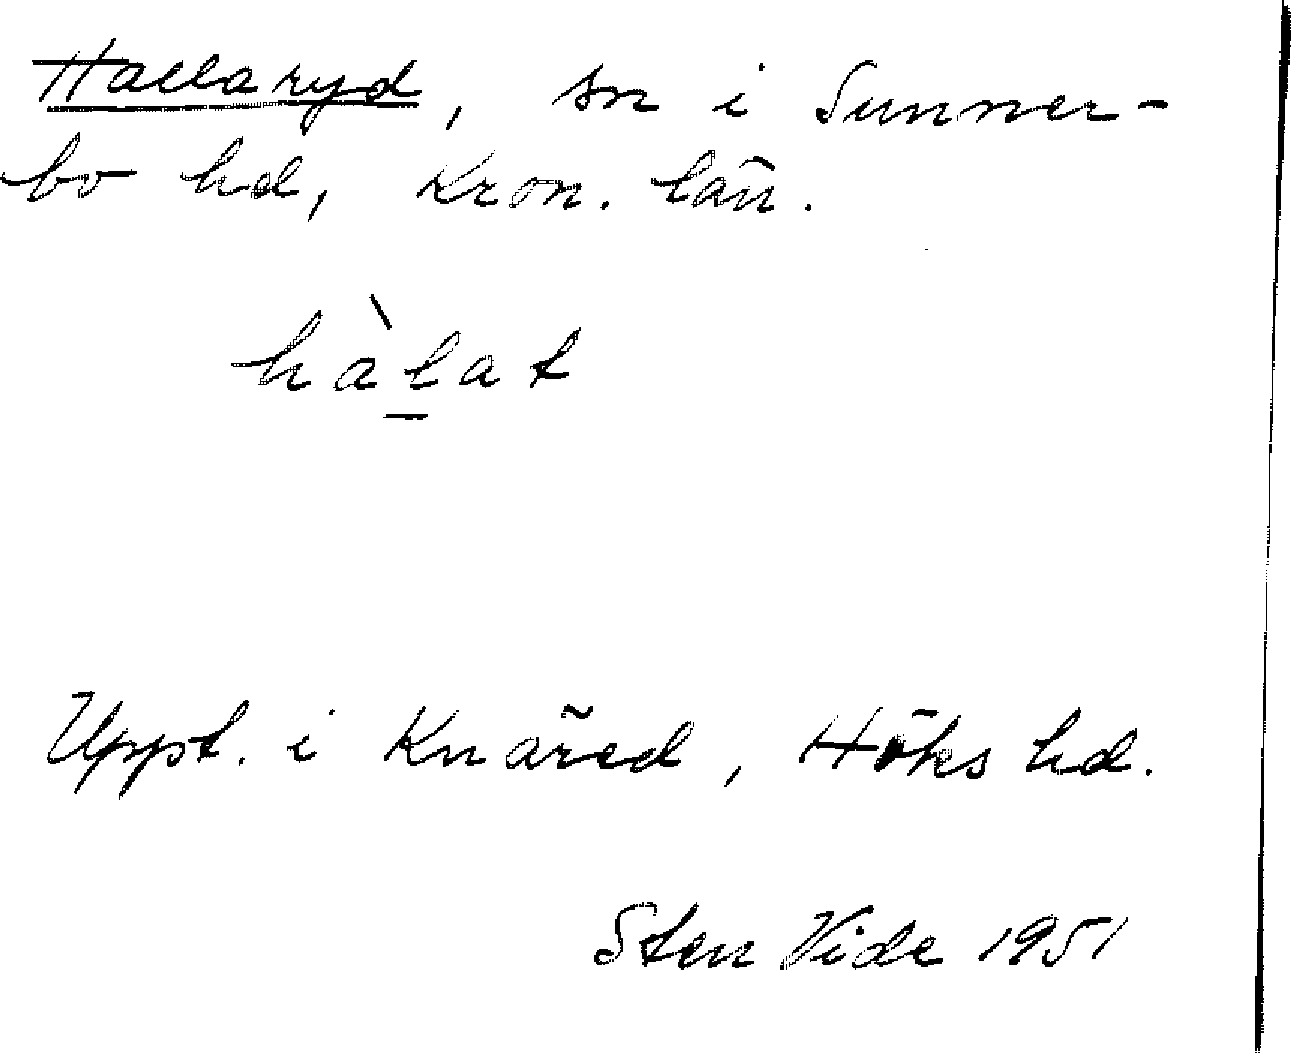 Hallaryd, sn i Sunner-
bo hd, Kron. län.
hàl̲at
Uppt. i Knäred, Höks hd.
Sten Vide 1951